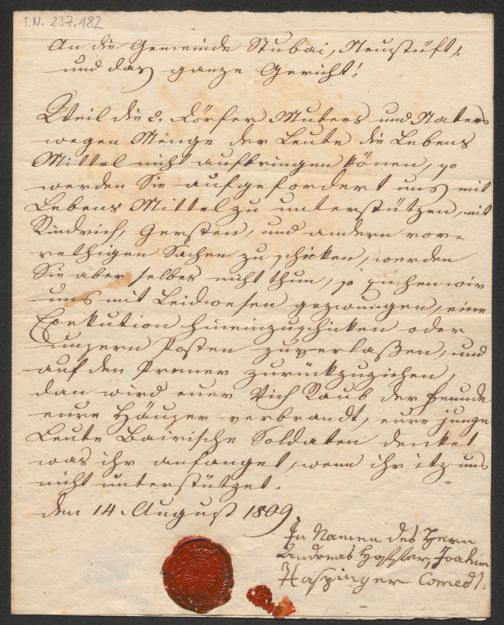 I.N. 237.182
An die Gemeinde Stubai, Neustift,
und das ganze Gericht!
Weil die 2. Dörfer Muters und Naters
wegen Menge der Leute die Lebens
Mittel nicht aufbringen könen, so
werden Sie aufgefordert uns mit
Lebens Mittel zu unterstützen, mit
Rindvieh, Gersten, und andern vor-
rethigen Sachen zu schicken, werden
Sie aber selbes nicht thun, so sehen wir
uns mit Leidwesen gezwungen, eine
Exekution hineinzuschicken oder
unsern Posten zuverlaßen, und
auf den Prener zurückzuziehen,
dan wird euer Vich Raub der Feunde
eure Häuser verbrandt, eure junge
Leute Bairische Soldaten denket
was ihr anfanget, wenn ihr itz uns
nicht unterstützet.
den 14. August 1809.
In Namen des Herrn
Andreas Hoffer, Joachim
Haspinger Comed.